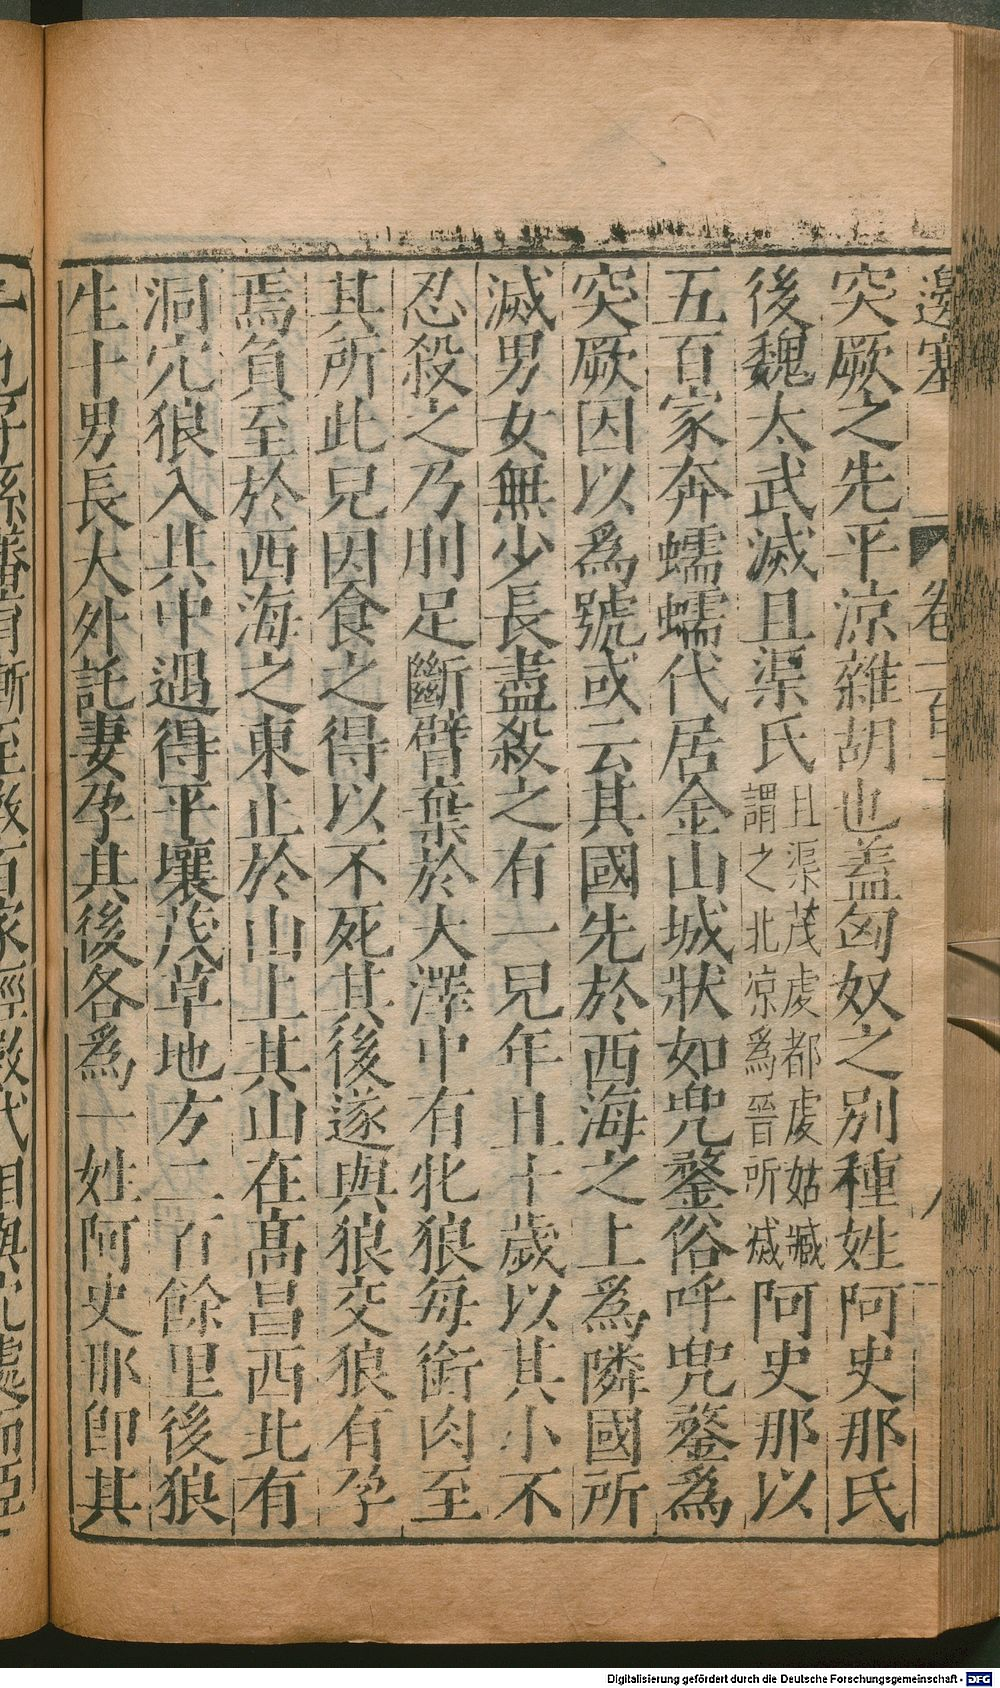 邊塞
卷一百
突厥之先平涼雜胡也蓋匈奴之別種姓阿史那氏
後魏太武滅且渠氏
且渠茂虔都虔姑臧
謂之北涼爲晉所滅
阿史那以
五百家奔蠕蠕代居金山城狀如兜鍪俗呼兜鍪爲
突厥因以爲號或云其國先於西海之上爲隣國所
滅男女無少長盡殺之有一兒年且十歲以其小不
忍殺之乃刖足斷臂棄於大澤中有牝狼每銜肉至
其所此兒因食之得以不死其後遂與狼交狼有孕
焉負至於西海之東止於山上其山在高昌西北有
洞穴狼入其中遇得平壤茂草地方二百餘里後狼
生十男長大外託妻孕其後各爲一姓阿史那卽其
一也子孫蕃育漸至數百家經數代相與穴處而臣
Digitalisierung gefördert durch die Deutsche Forschungsgemeinschaft - DFG